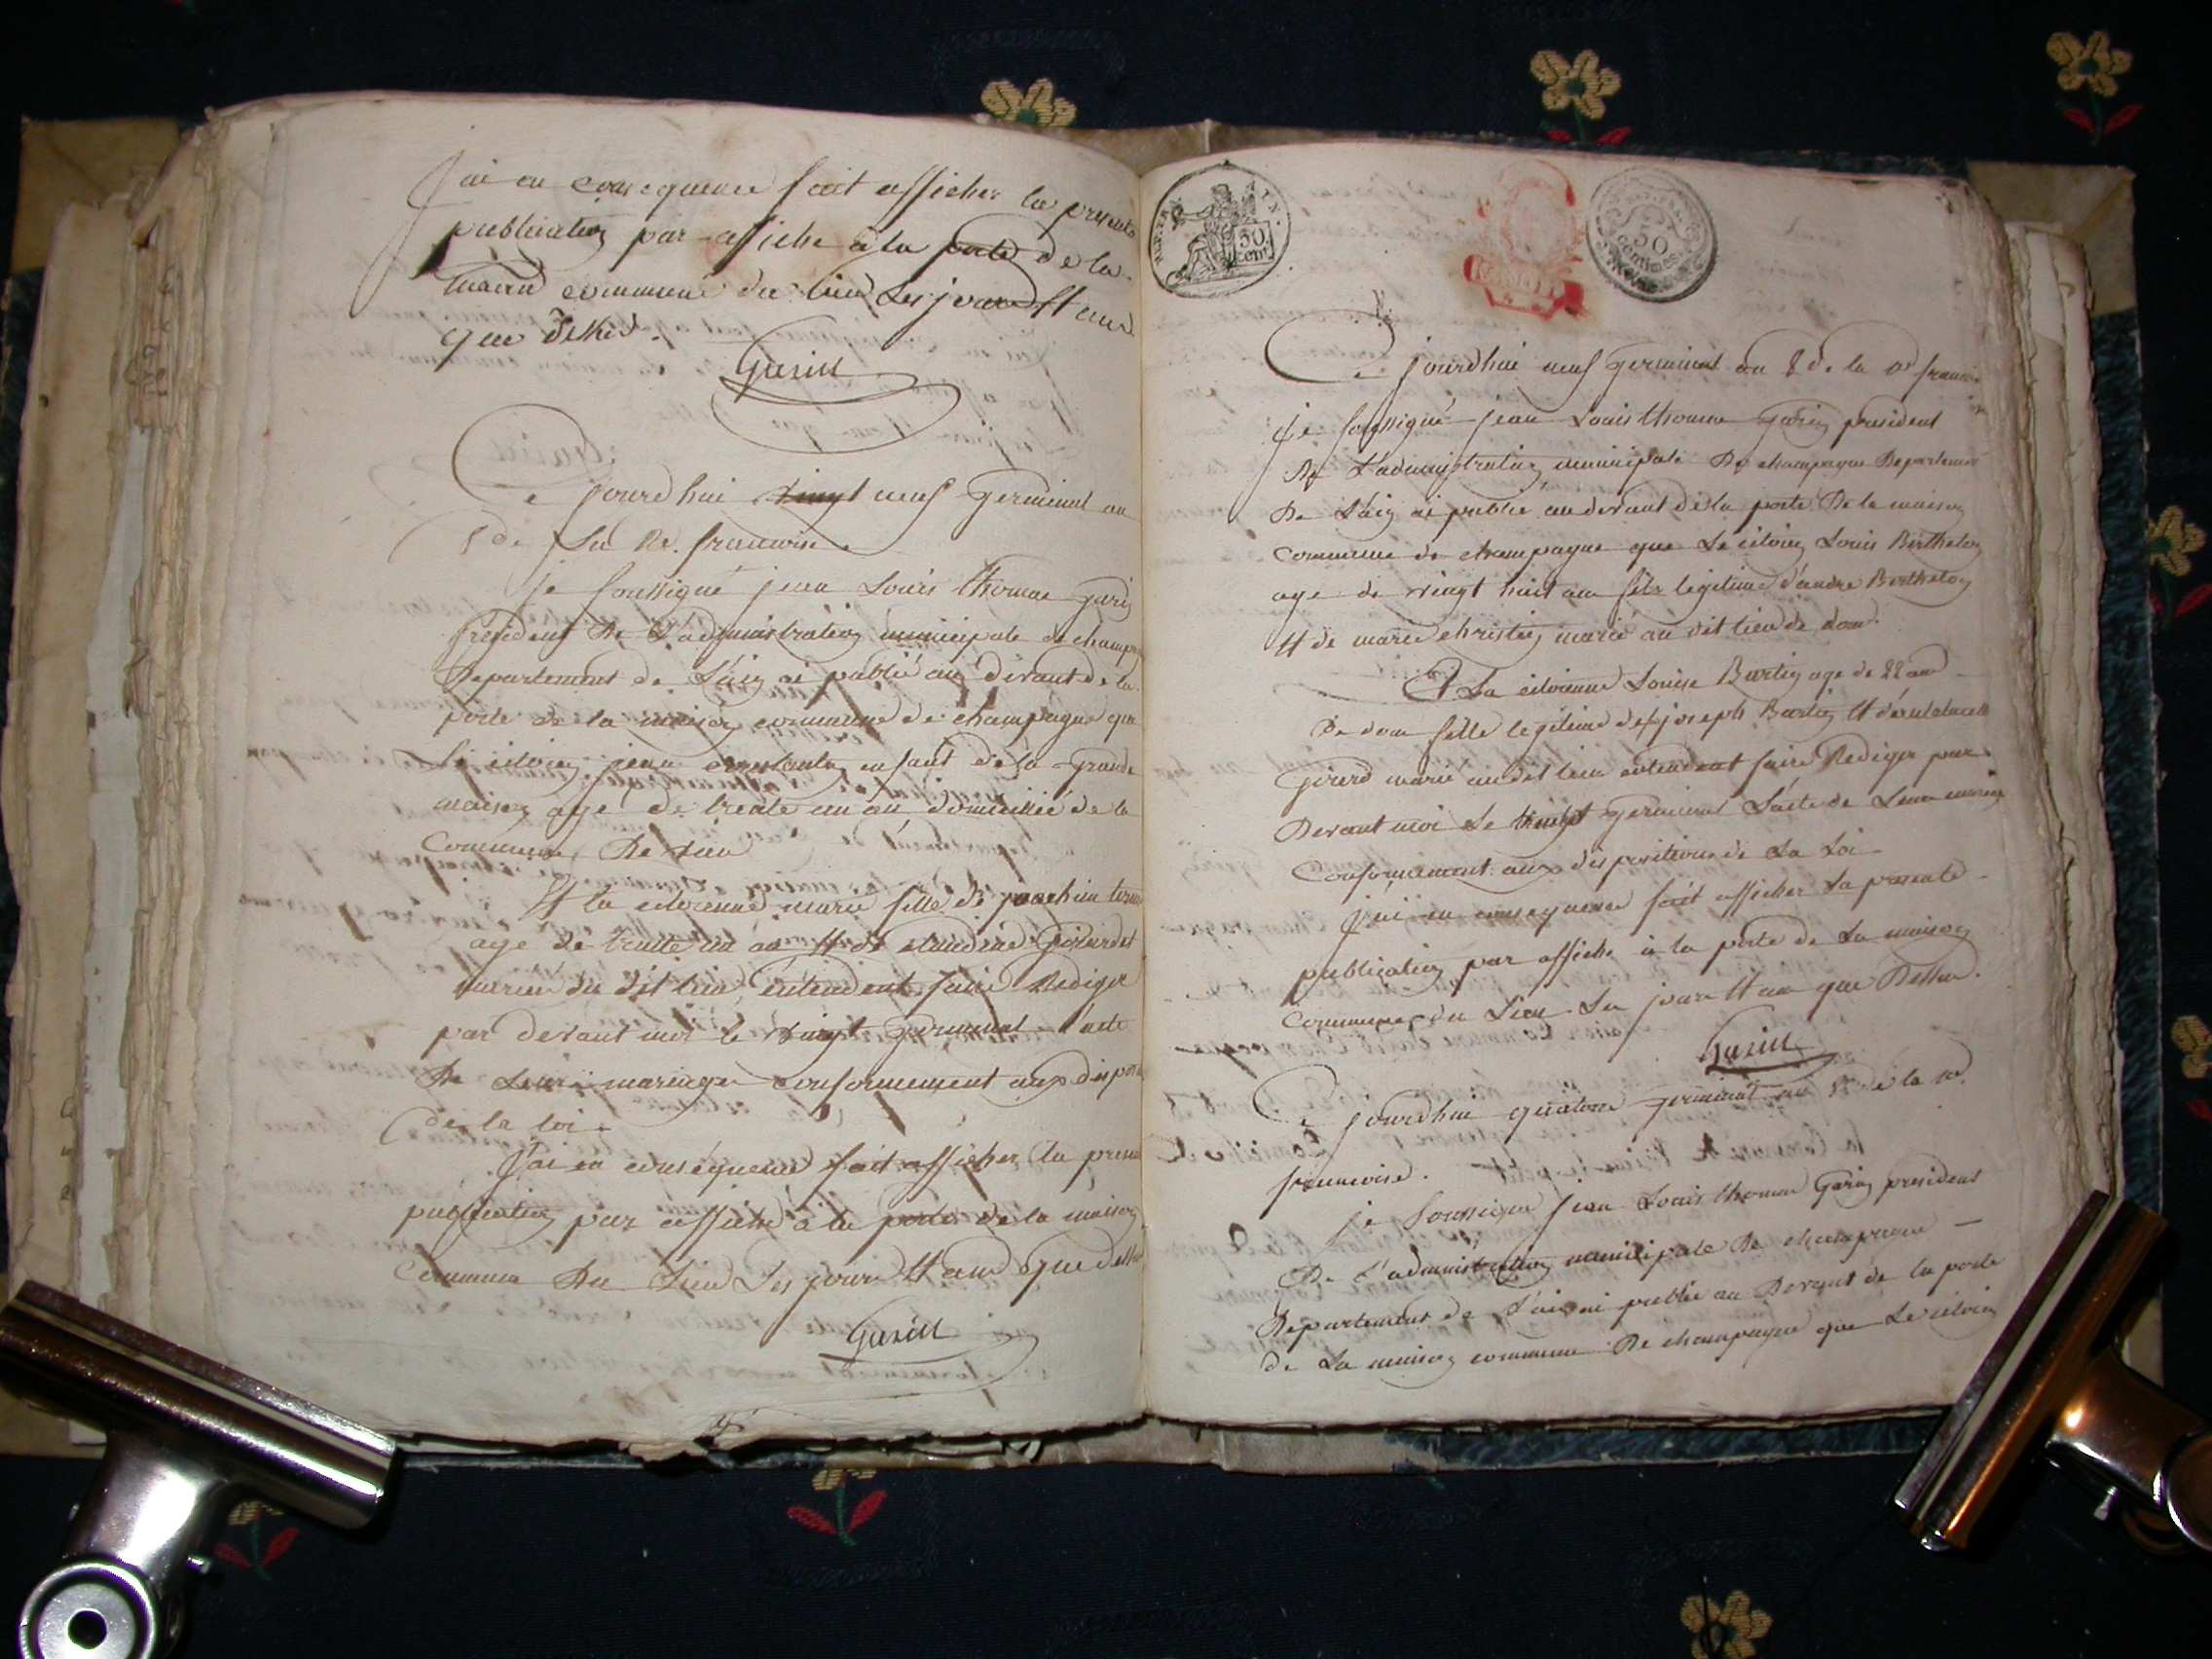 J'ai en consequence fait afficher la presente
publication par affiche a la porte de la
maison commune du lieu les jours et an
que dessus.
Garin
Ce jourdhui vingt neuf germinal an
8 de la Re. francoise
je soussigné jean Louis thomas garin
president De L'administration municipale de champagne
Departement de L'ain ai publié au devant de la
porte de la maison commune de champagne que
le citoien jean enfant de la grande
maison age de trente un an domicillié de la
Commune De
Et la citoienne marie fille de joachim
age de trente un an et de claudine
mariée du dit lieu entendent faire Rediger
par devant moi le vingt germinal l'acte
De Leur mariage conformement aux dispo
de la loi.
J'ai en conséquence fait afficher la presente
publication par affiche à la porte de la maison
Commune Du Lieu Les jours et an que dessus
Garin
REP. FRA.
50 cent.
50 centimes
Ce jourdhui neuf germinal an 8 de la Re francoise
je soussigné jean Louis thomas Garin president
De L'administration municipale De champagne Departement
De L'ain ai publié au devant de la porte De la maison
commune de champagne que Le citoien Louis Berthelon
age de vingt huit an fils legitime d'andre Berthelon
et de marie christin marié au dit lieu de don.
Et La citoienne Louise Bertin age de 22 an
De don fille legitime de joseph Bertin et
girerd marié au dit lieu entendent faire Rediger par
Devant moi Le vingt germinal L'acte de Leur mariage
Conformement aux dispositions de La Loi
J'ai en consequence fait afficher La presente
publication par affiche à la porte de La maison
Commune du Lieu Les jours et an que Dessus.
Garin
Ce jourdhui quatorze germinal an 8 de la Re.
francoise.
je soussigné jean Louis thomas Garin president
De L'administration municipale De champagne
Departement de L'ain ai publié au Devant de la porte
de La maison commune De champagne que Le citoien